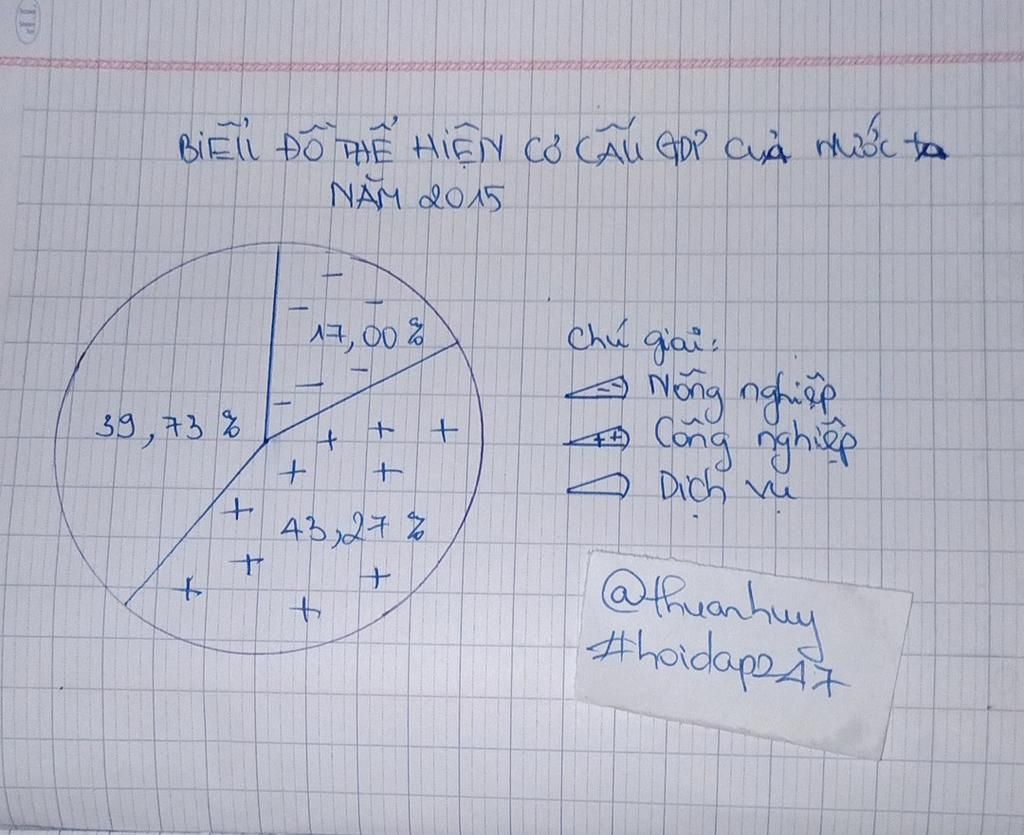 BIỂU ĐỒ THỂ HIỆN CƠ CẤU GDP CỦA NƯỚC ta
NĂM 2015
17,00 %
39,73 %
43,27 %
Chú giải:
Nông nghiệp
Công nghiệp
Dịch vụ
@thuanhuy
#hoidap247